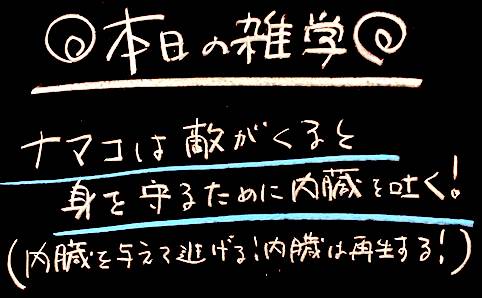 本日の雑学
ナマコは敵がくると
身を守るために内臓を吐く!
(内臓を与えて逃げる!内臓は再生する!)